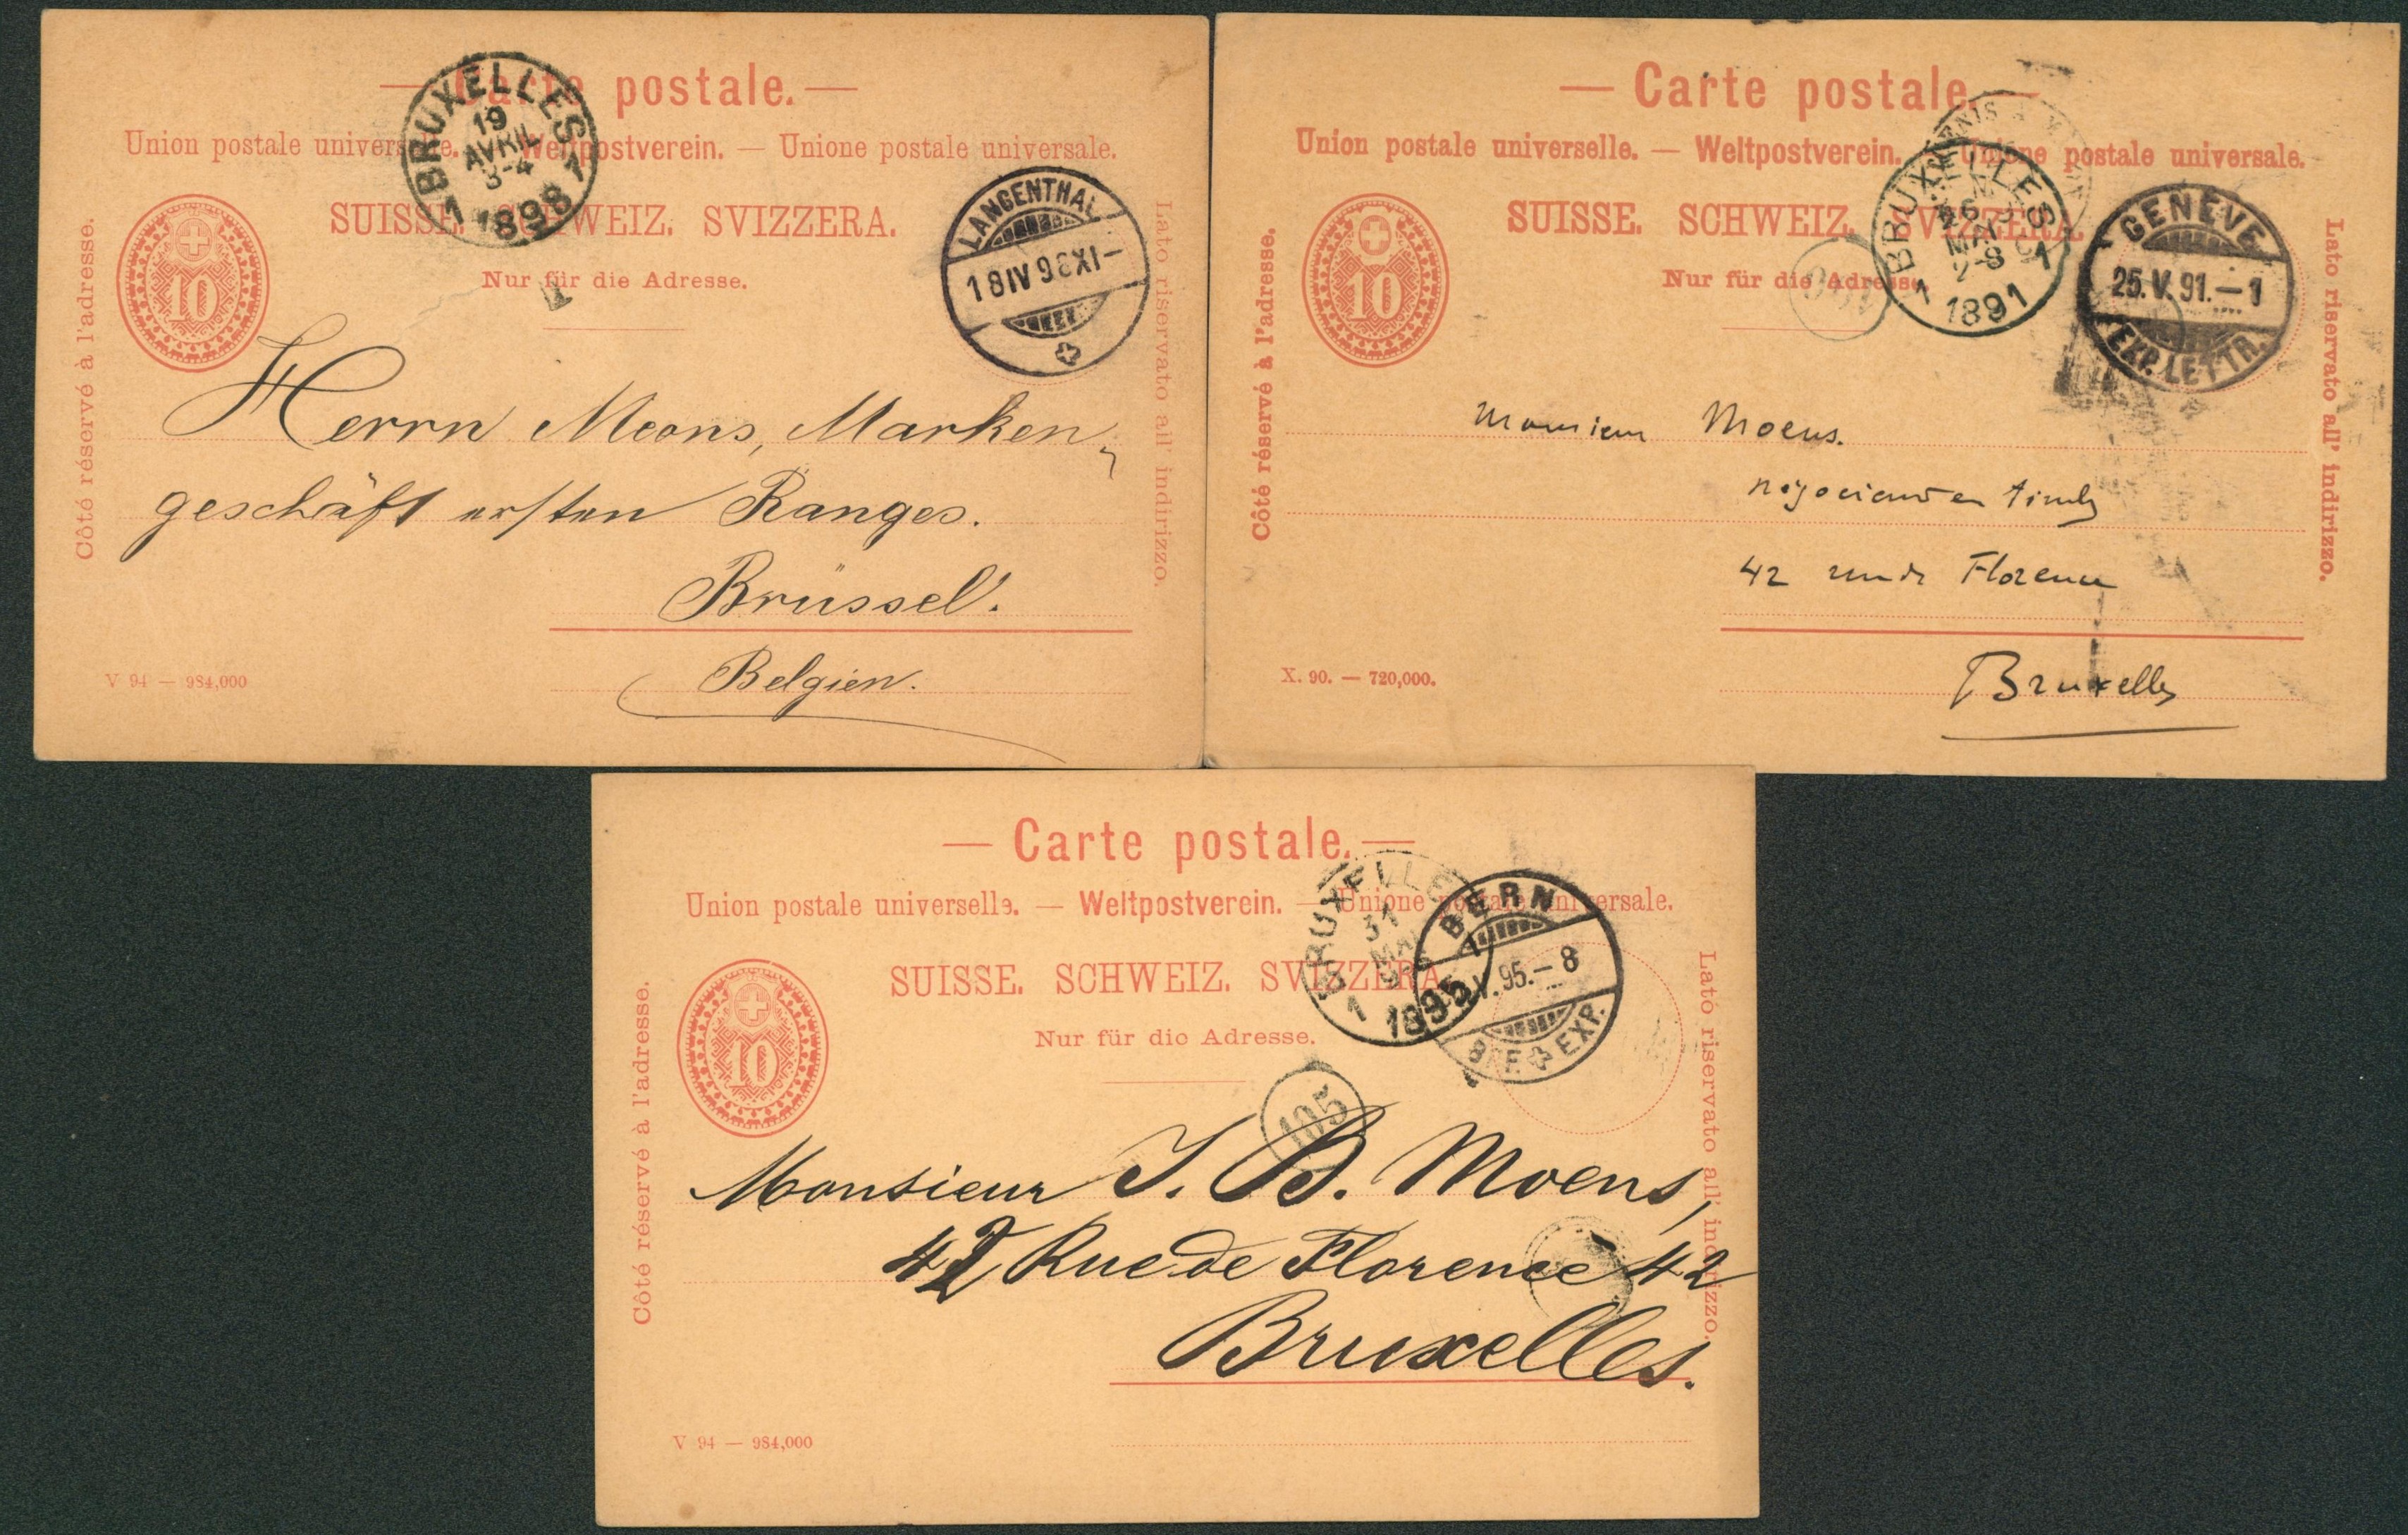 — Carte postale. —
Union postale universelle. — Weltpostverein. — Unione postale universale.
SUISSE. SCHWEIZ. SVIZZERA.
Nur für die Adresse.
Côté réservé à l'adresse.
Lato riservato all' indirizzo.
10
BRUXELLES
19
AVRIL
3-4
1 1898 1
LANGENTHAL
18 IV 98 XI—
T
Herrn Meons, Marken-
geschäft ersten Ranges.
Brüssel.
Belgien.
V 94 — 984,000
— Carte postale. —
Union postale universelle. — Weltpostverein. — Unione postale universale.
SUISSE. SCHWEIZ. SVIZZERA.
Nur für die Adresse.
Côté réservé à l'adresse.
Lato riservato all' indirizzo.
10
BRUXELLES
26
MAI
1 1891 1
GENÈVE
25. V. 91. — 1
EXP. LETTR.
Monsieur Moens.
négociant en timb
42 rue de Florence
Bruxelles
X. 90. — 720,000.
— Carte postale. —
Union postale universelle. — Weltpostverein. — Unione postale universale.
SUISSE. SCHWEIZ. SVIZZERA.
Nur für die Adresse.
Côté réservé à l'adresse.
Lato riservato all' indirizzo.
10
BRUXELLES
31
MAI
1 1895
BERN
V. 95. — 8
BRF. EXP.
105
Monsieur J. B. Moens,
42 Rue de Florence 42
Bruxelles.
V 94 — 984,000